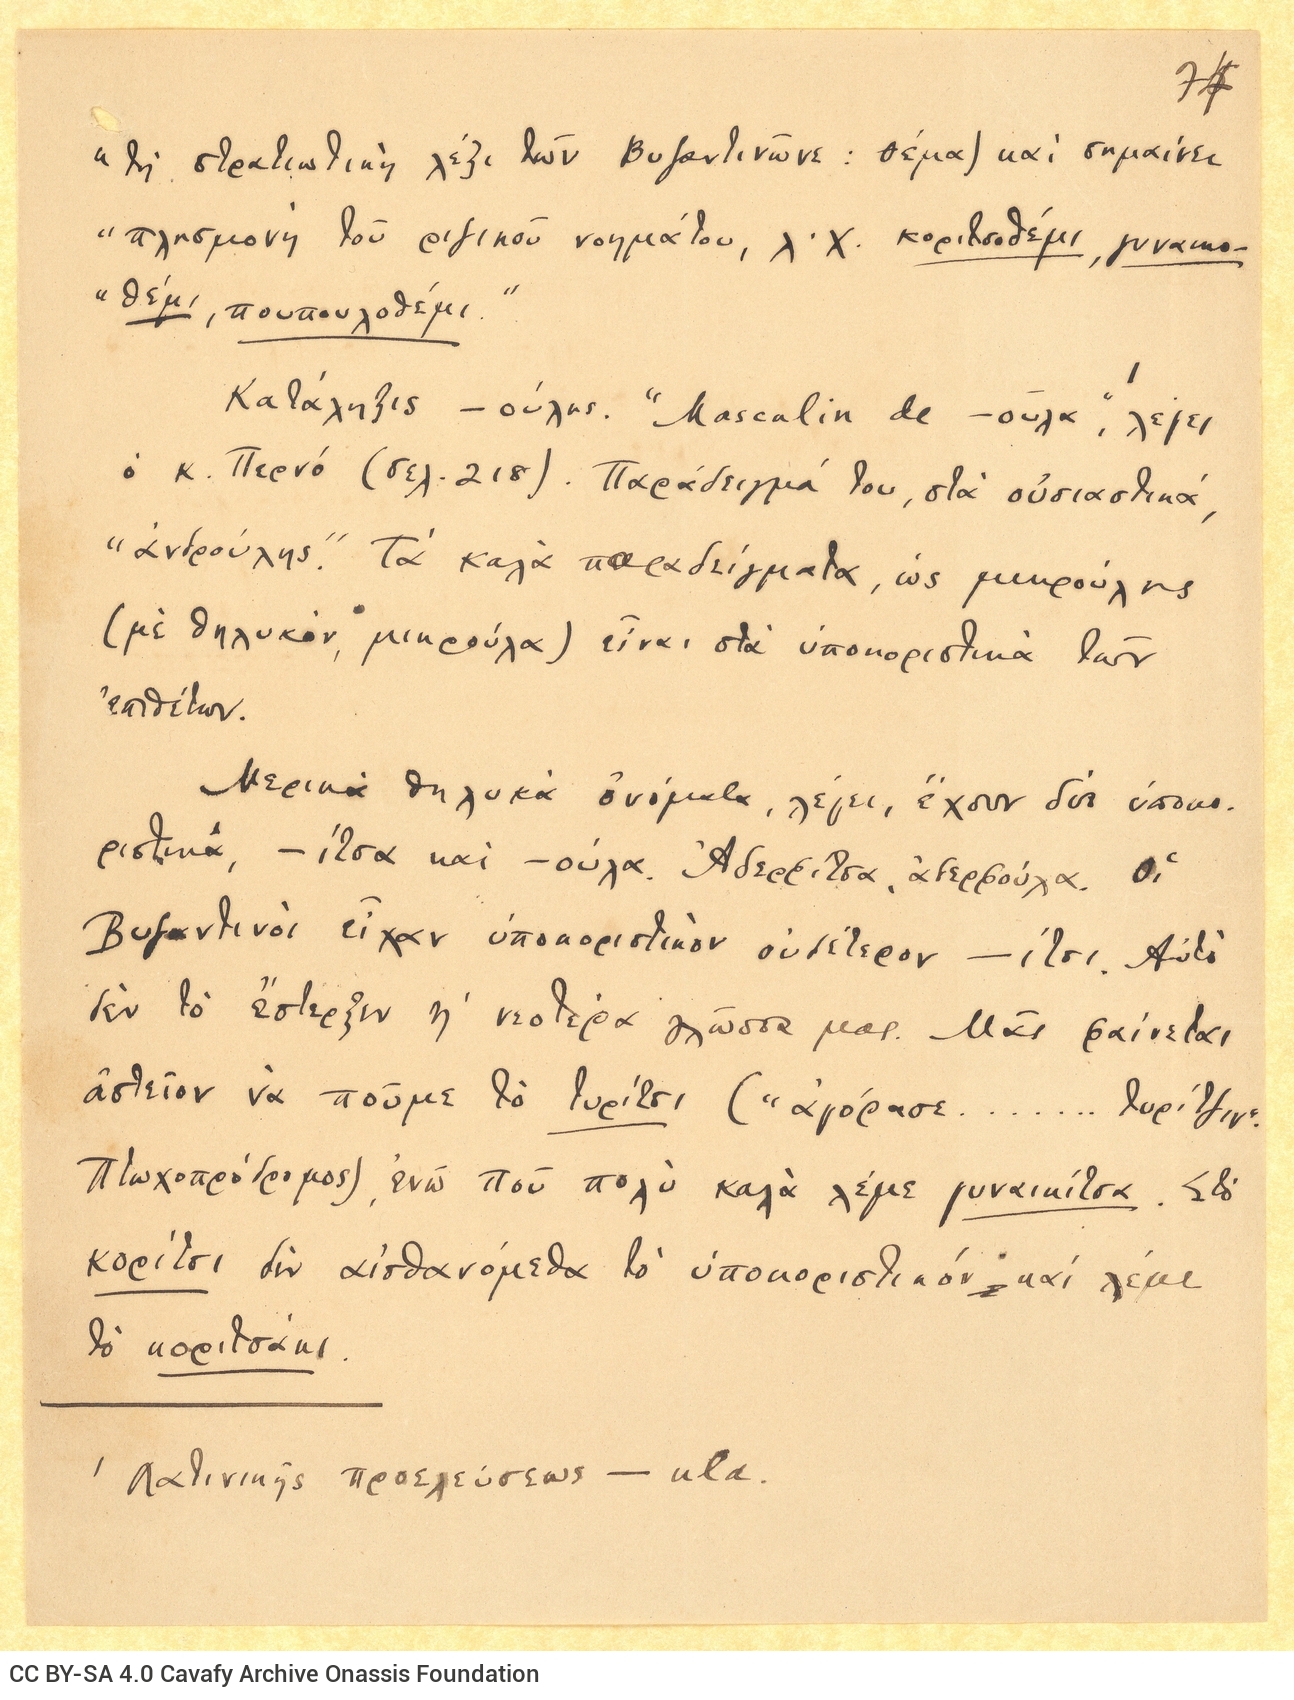 7
“ τῇ στρατιωτικῇ λέξι τῶν Βυζαντινῶνε : θέμα) καὶ σημαίνει
“ πλησμονὴ τοῦ ριζικοῦ νοημάτου, λ.χ. κοριτσοθέμι, γυναικο-
“ θέμι, πουπουλοθέμι.”
Κατάληξις -ούλης. “Masculin de -οῦλα”,¹ λέγει
ὁ κ. Περνό (σελ. 218). Παράδειγμά του, στὰ οὐσιαστικά,
“ἀνδρούλης”. Τὰ καλὰ παραδείγματα, ὡς μικρούλης
(μὲ θηλυκὸν, μικρούλα) εἶναι στὰ ὑποκοριστικὰ τῶν
ἐπιθέτων.
Μερικὰ θηλυκὰ ὀνόματα, λέγει, ἔχουν δύο ὑποκο-
ριστικά, -ίτσα καὶ -ούλα. Ἀδερφίτσα, ἀδερφούλα. Οἱ
Βυζαντινοὶ εἶχαν ὑποκοριστικὸν οὐδέτερον -ίτσι. Αὐτὸ
δὲν τὸ ἔστερξεν ἡ νεοτέρα γλῶσσα μας. Μᾶς φαίνεται
ἀστεῖον νὰ ποῦμε τὸ τυρίτσι (“ἀγόρασε........ τυρίτζιν”.
Πτωχοπρόδρομος), ἐνῶ ποῦ πολὺ καλὰ λέμε γυναικίτσα. Στὸ
κορίτσι δὲν αἰσθανόμεθα τὸ ὑποκοριστικόν, καί λέμε
τὸ κοριτσάκι.
¹ Λατινικῆς προελεύσεως — κτλ.
CC BY-SA 4.0 Cavafy Archive Onassis Foundation